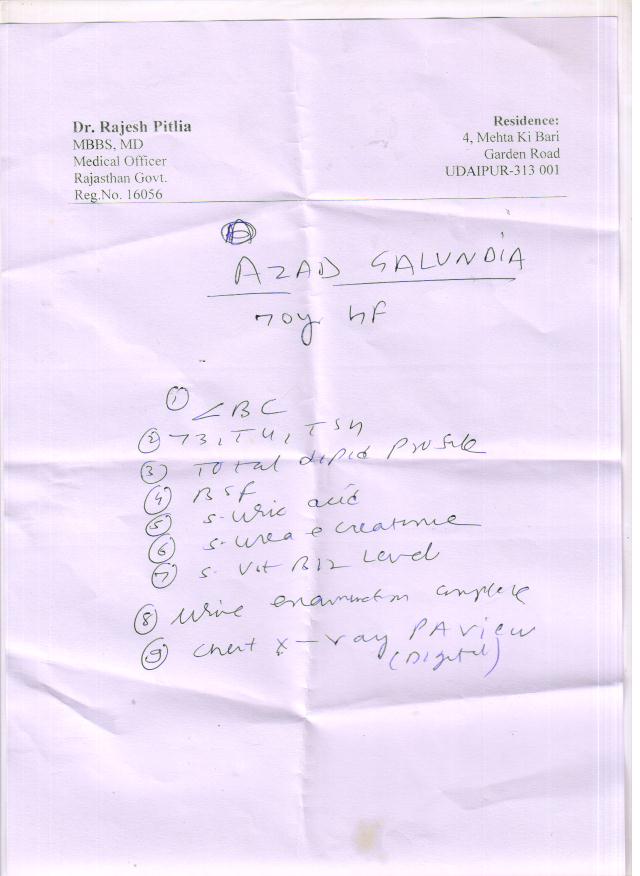 Dr. Rajesh Pitlia
MBBS, MD
Medical Officer
Rajasthan Govt.
Reg.No. 16056
Residence:
4, Mehta Ki Bari
Garden Road
UDAIPUR-313 001
AZAD GALUNDIA
70y
1 CBC
2 T3, T4, TSH
3 Total Lipid Profile
4 BSF
5 S-Uric acid
6 S-Urea e Creatinine
7 S. Vit B12 Level
8 Urine examination complete
9 Chest X-ray PA VIEW
(Digital)